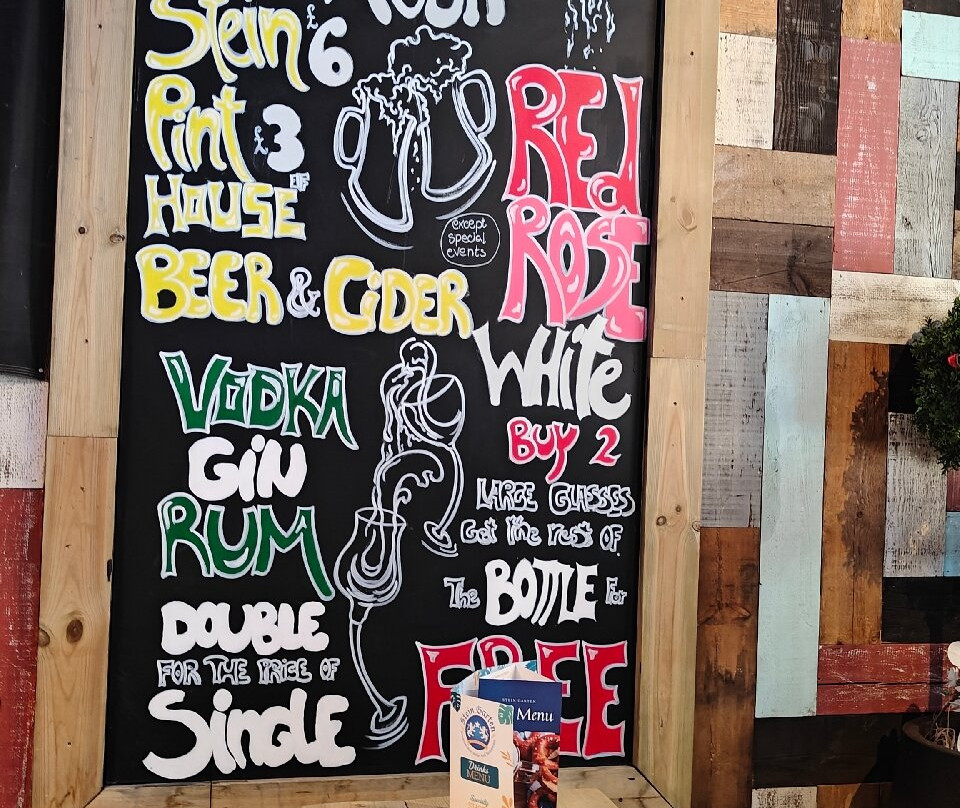 Stein £6
Pint £3
OF
HOUSE
BEER & CiDER
VODKA
GiN
RUM
DOUBLE
FOR THE PRICE OF
SinGLE
except
special
events
REd
ROSE
WHite
BUY 2
LARGE GLASSES
Get the rest OF
The BOTTLE For
FREE
STEIN GARTEN
Menu
Stein Garten
Drinks
MENU